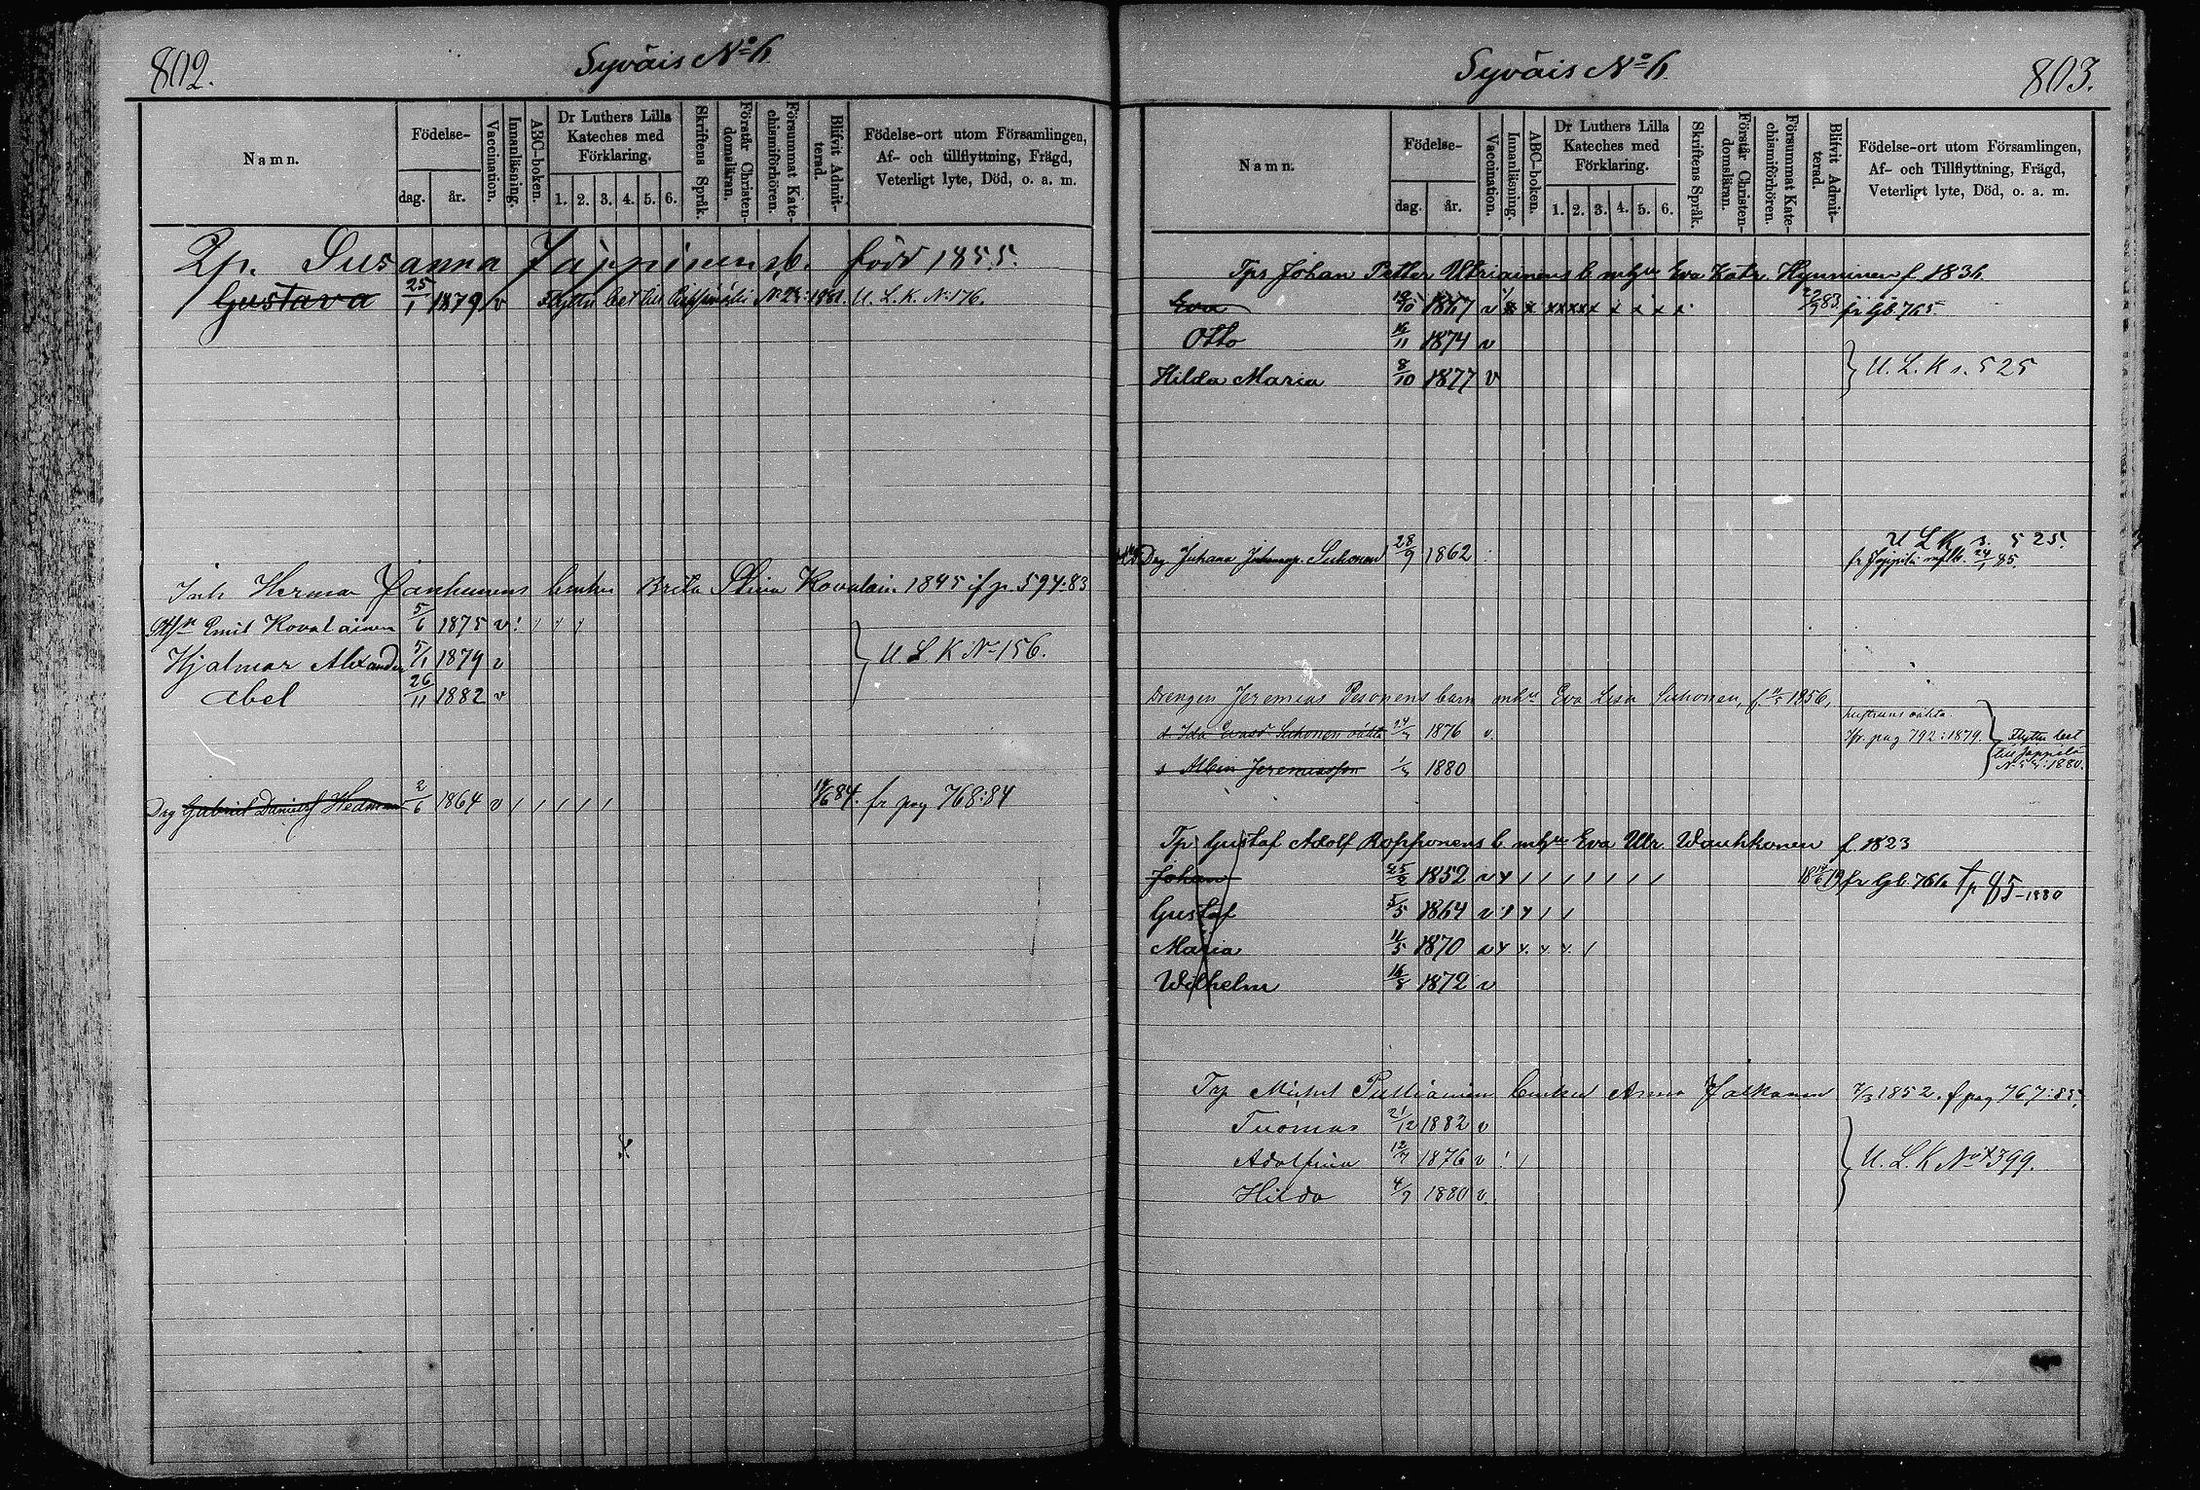 802.
Syväis No 6
Namn.
Födelse-
dag.
år.
Vaccination.
Innanläsning.
ABC-boken.
Dr Luthers Lilla
Kateches med
Förklaring.
1. 2. 3. 4. 5. 6.
Skriftens Språk.
Förstår Christen-
domsläran.
Försummat Kate-
chismiförhören.
Blifvit Admit-
terad.
Födelse-ort utom Församlingen,
Af- och tillflyttning, Frägd,
Veterligt lyte, Död, o. a. m.
Susanna Jäppinens b. född 1855.
Gustava 25/1 1879 v Flyttn bet till 1881. U. L. K. No 176.
Inh Herman Janhunens b m h u Brita Stina Kovalain. 1845 if p. 594:83
Emil Kovalainen 5/6 1875 v
Hjalmar Alexander 5/1 1879 v U. L. K No 156.
Abel 26/11 1882 v
Drg Gabriel Danielss Hedman 2/6 1864 v / / / / / 84. fr pag 768:84
803.
Syväis No 6.
Namn.
Födelse-
dag.
år.
Vaccination.
Innanläsning.
ABC-boken.
Dr Luthers Lilla
Kateches med
Förklaring.
1. 2. 3. 4. 5. 6.
Skriftens Språk.
Förstår Christen-
domsläran.
Försummat Kate-
chismiförhören.
Blifvit Admit-
terad.
Födelse-ort utom Församlingen,
Af- och Tillflyttning, Frägd,
Veterligt lyte, Död, o. a. m.
Tprs Johan Petter Utriainens b m h u Eva Katr. Hynninen f 1836
Eva 1867 v 83 fr Gb 765.
Otto 1874 v
Hilda Maria 8/10 1877 v U. L. K s. 525
U L K s. 525.
Drg Juhana Suhonen 28/9 1862 fr Jäppilä 85.
Drengen Jeremias Pesonens barn m h u Eva Lisa Suhonen, f. 1856,
d. Ida Suhonen 1876 v. pag 792:1879. Flyttn bet
s Albin Jeremiasson 1880 till Jäppilä 1880.
Tp Gustaf Adolf Ropponens b m h u Eva Ulr. Wauhkonen f 1823
Johan 1852 v 19 fr Gb. 766 p 85-1880
Gustaf 5/5 1864 v
Maria 11/5 1870 v
Wilhelm 16/8 1872 v
Tp Michel b m h u Anna 1852. f pag 767:85.
Tuomas 21/12 1882 v
Adolfina 1876 v U. L. K No 399.
Hilda 1880 v.